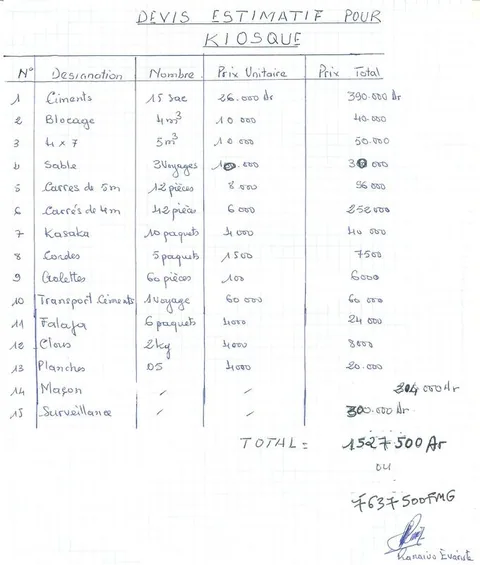 DEVIS ESTIMATIF POUR
KIOSQUE
N° Designation Nombre Prix Unitaire Prix Total
1 Ciments 15 sac 26.000 Ar 390.000 Ar
2 Blocage 4m³ 10 000 40.000
3 4 x 7 5m³ 10 000 50.000
4 Sable 3 Voyages 10.000 30 000
5 Carres de 5m 12 pièces 8 000 56 000
6 Carrés de 4m 42 pièces 6 000 252 000
7 Kasaka 10 paquets 4 000 40 000
8 Cordes 5 paquets 1500 7500
9 60 pièces 100 6000
10 Transport Ciments 1 Voyage 60 000 60 000
11 Falafa 6 paquets 4000 24 000
12 Clous 2 kg 4000 8000
13 Planches 05 4000 20.000
14 Maçon / / 000 Ar
15 Surveillance / / 300.000 Ar
TOTAL = 1527 500 Ar
ou
7637 500 FMG